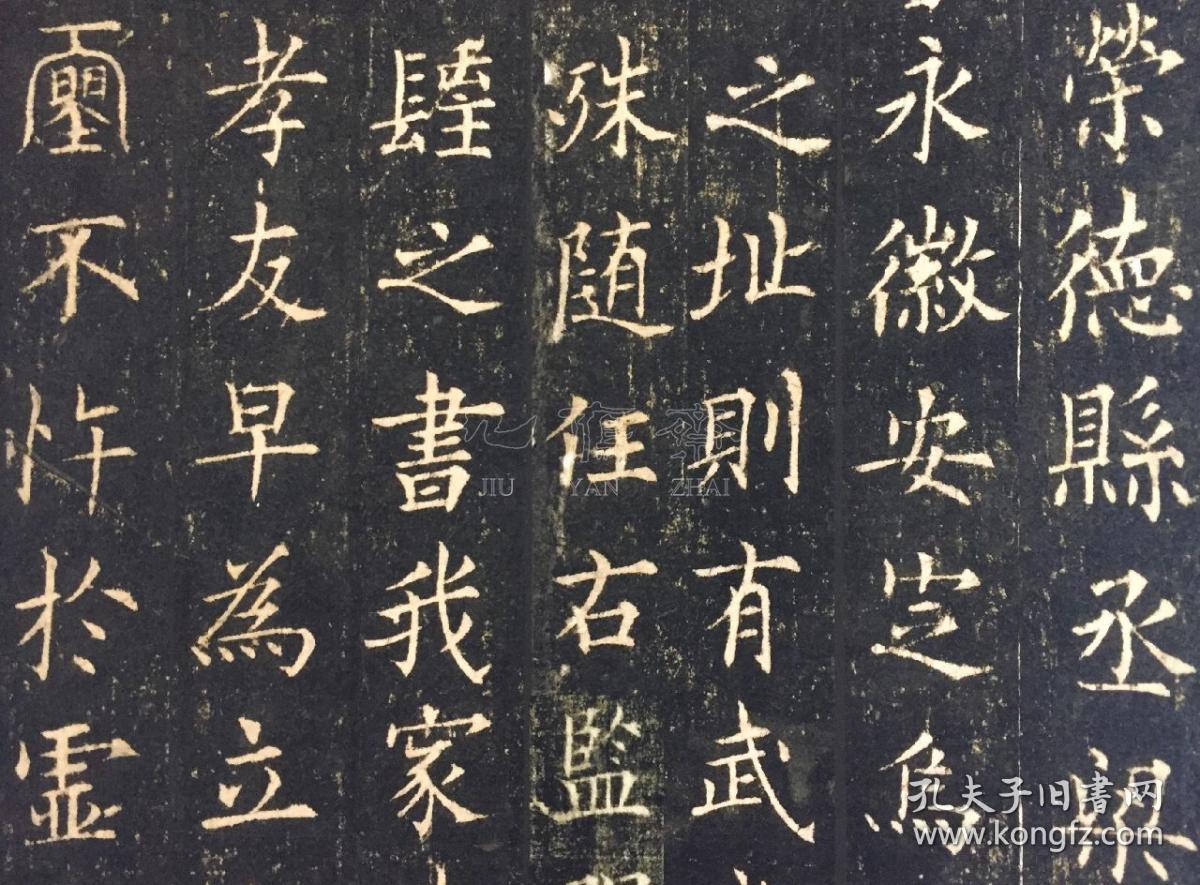 榮德縣丞梁
永徽安定烏
之址則有武
殊随任右監
肆之書我家
孝友早為立
不忤於虛
九燕齋
JIU YAN ZHAI
孔夫子旧書网
www.kongfz.com